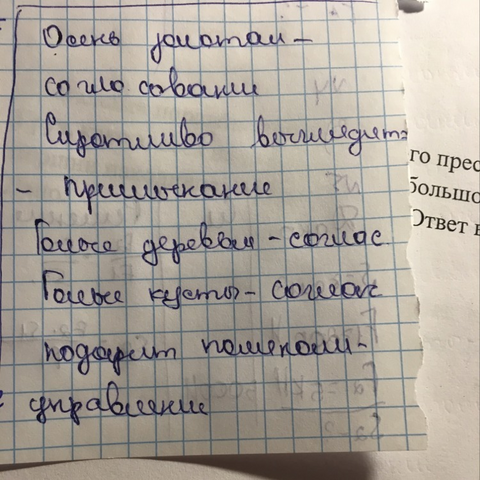 Осень золотая -
согласование
Сиротливо выглядят -
- примыкание
Голые деревья - соглас
Голые кусты - соглас
подарит
управление
го прес
большо
Ответ н